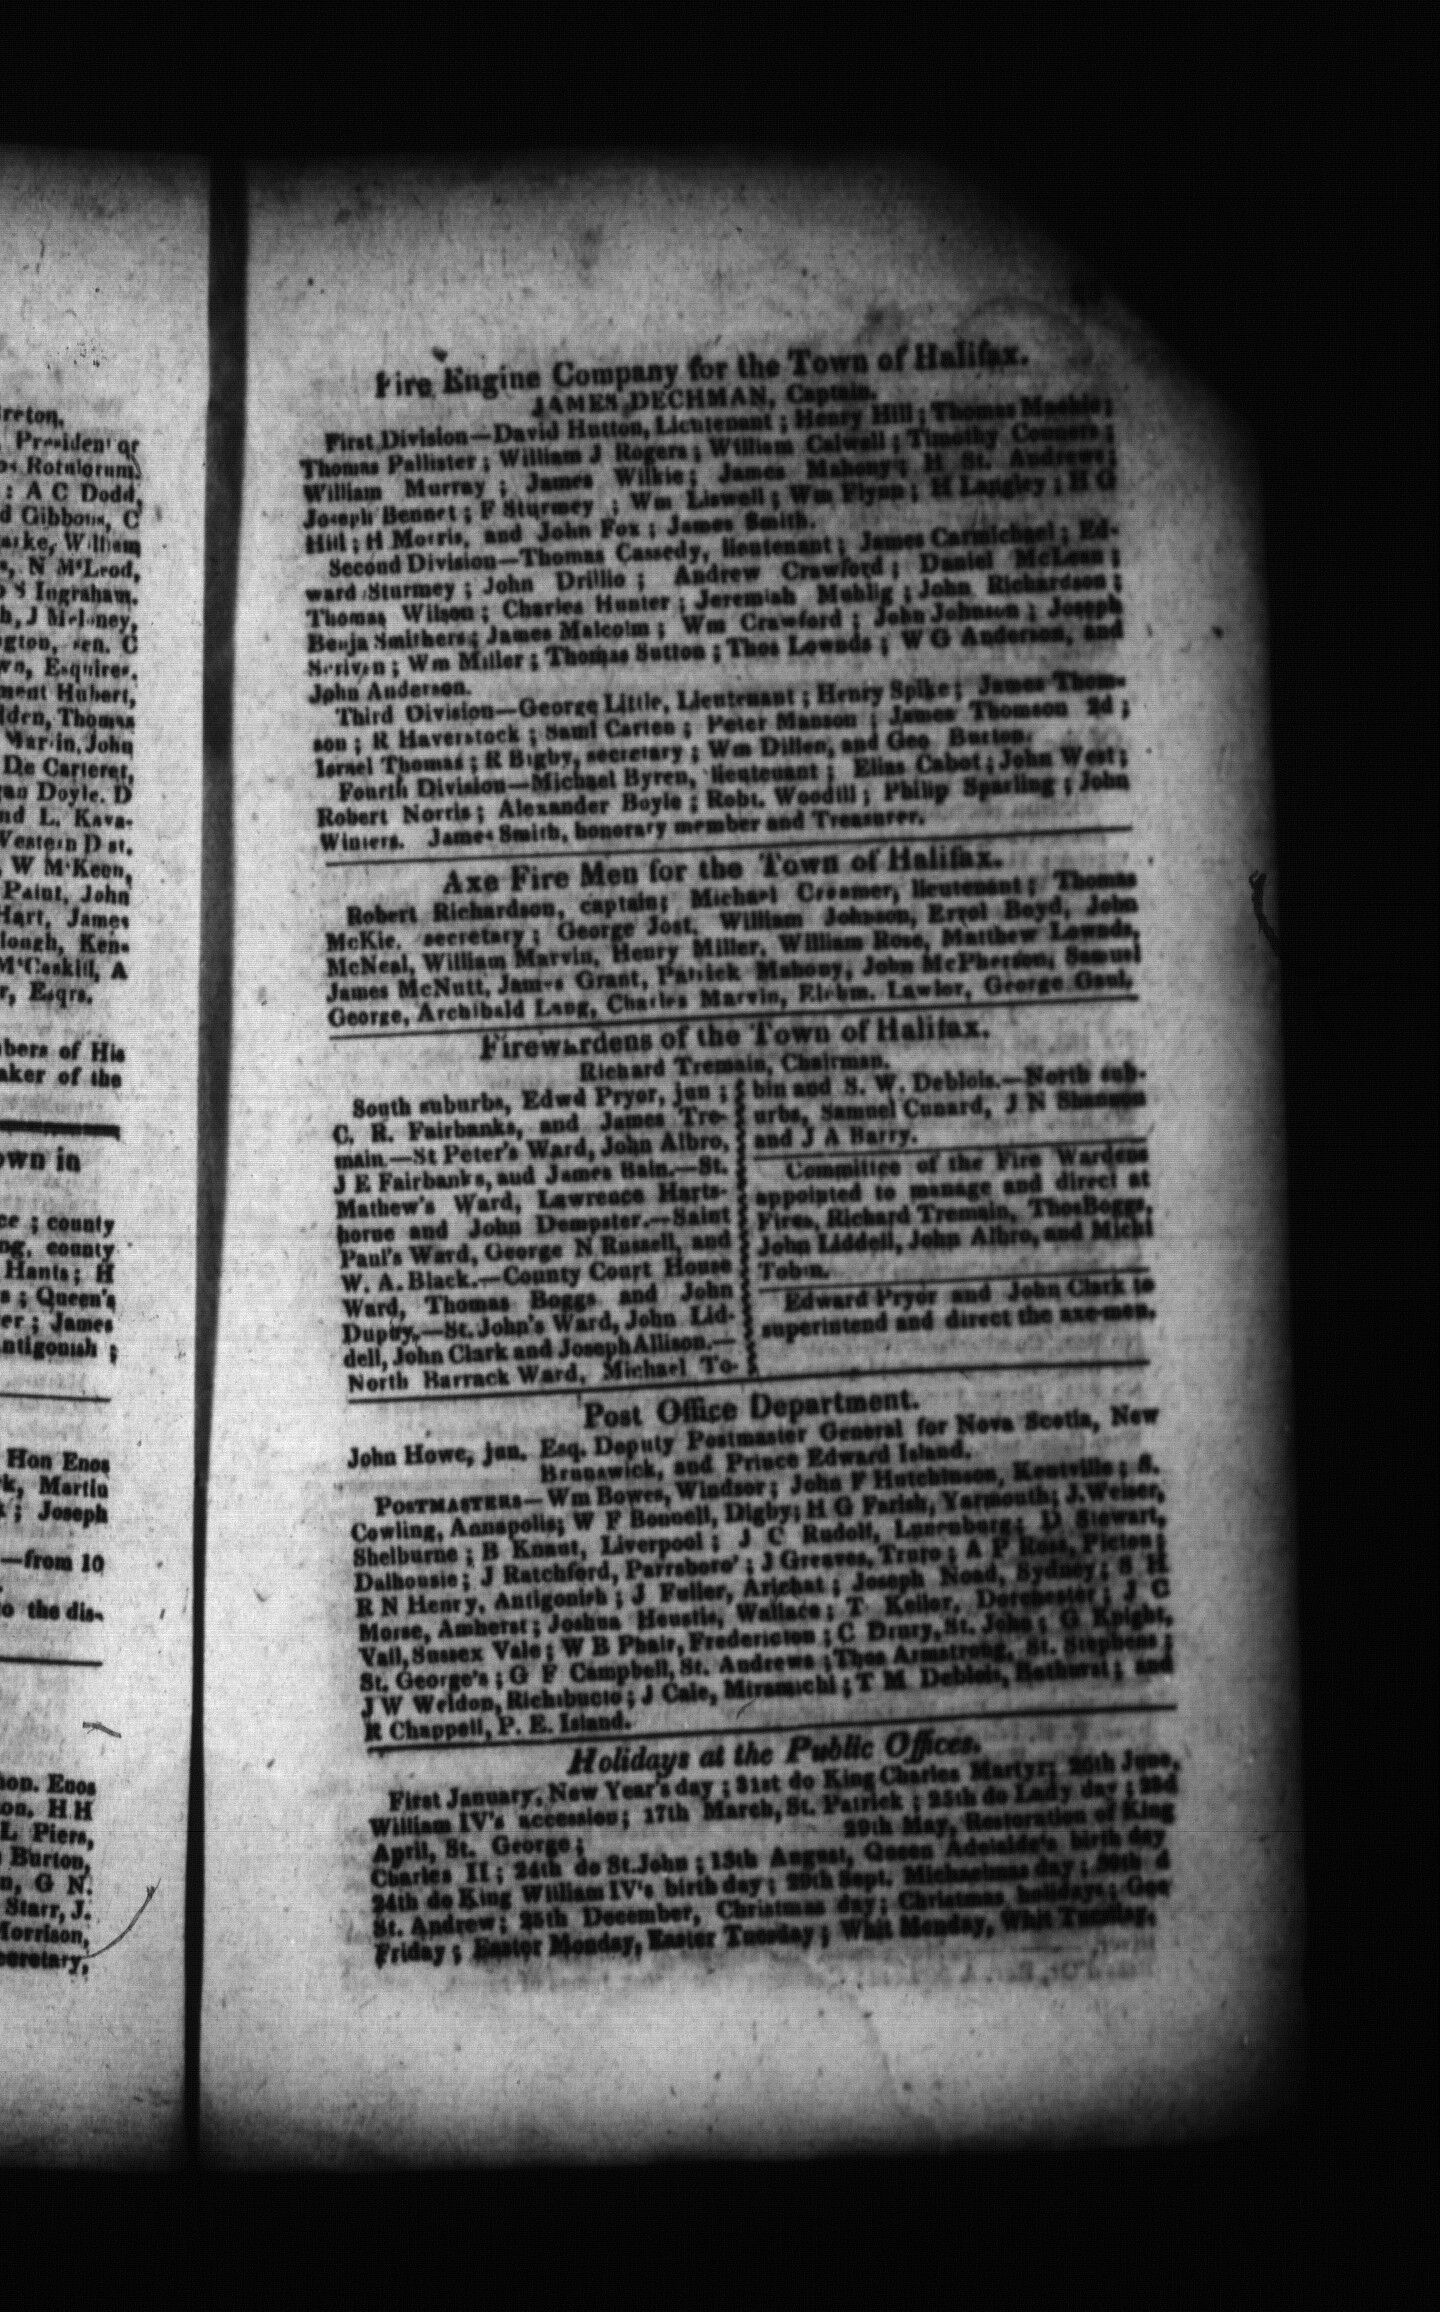 reton,
President or
Rotulorum.
: A C Dodd,
d Gibbons, C
arke, William
s, N McLeod,
S Ingraham.
h, J Meloney,
ngton, sen. C
wn, Esquires.
ment Hubert,
lden, Thomas
Martin, John
De Carteret,
gan Doyle. D
nd L. Kava-
Western Dist.
, W McKeen,
Paint, John
Hart, James
lough, Ken-
McCaskill, A
r, Esqrs.
bers of His
aker of the
own in
ce ; county
ng, county
Hants ; H
s ; Queen's
er ; James
Antigonish ;
Hon Enos
k, Martin
; Joseph
—from 10
o the dis-
hon. Enos
on, H H
L Piers,
Burton,
n, G N.
Starr, J.
Morrison,
ecretary,
Fire Engine Company for the Town of Halifax.
JAMES DECHMAN, Captain.
First Division—David Hutton, Lieutenant ; Henry Hill ; Thomas Mackie ;
Thomas Pallister ; William J Rogers ; William Calwell ; Timothy Connors ;
William Murray ; James Wilkie ; James Mahony ; H St. Andrews ;
Joseph Bennet ; F Sturmey ; Wm Liswell ; Wm Flynn ; H Langley ; H G
Hill ; H Morris, and John Fox ; James Smith.
Second Division—Thomas Cassedy, lieutenant ; James Carmichael ; Ed-
ward Sturmey ; John Drillio ; Andrew Crawford ; Daniel McLean ;
Thomas Wilson ; Charles Hunter ; Jeremiah Muhlig ; John Richardson ;
Benja Smithers ; James Malcolm ; Wm Crawford ; John Johnson ; Joseph
Scriven ; Wm Miller ; Thomas Sutton ; Thos Lownds ; W G Anderson, and
John Anderson.
Third Division—George Little, Lieutenant ; Henry Spike ; James Thom-
son ; R Haverstock ; Saml Carten ; Peter Manson ; James Thomson 2d ;
Israel Thomas ; R Bigby, secretary ; Wm Dillen, and Geo Burton.
Fourth Division—Michael Byren, lieutenant ; Elias Cabot ; John West ;
Robert Norris ; Alexander Boyle ; Robt. Woodill ; Philip Sparling ; John
Winters. James Smith, honorary member and Treasurer.
Axe Fire Men for the Town of Halifax.
Robert Richardson, captain ; Michael Creamer, lieutenant ; Thomas
McKie, secretary ; George Jost, William Johnson, Errol Boyd, John
McNeal, William Marvin, Henry Miller, William Rose, Matthew Lownds,
James McNutt, James Grant, Patrick Mahony, John McPherson, Samuel
George, Archibald Lang, Charles Marvin, Lawlor, George Gaul.
Firewardens of the Town of Halifax.
Richard Tremain, Chairman.
South suburbs, Edwd Pryor, jun ;
C. R. Fairbanks, and James Tre-
main.—St Peter's Ward, John Albro,
J E Fairbanks, aud James Bain.—St.
Mathew's Ward, Lawrence Harts-
horne and John Dempster.—Saint
Paul's Ward, George N Russell, and
W. A. Black.—County Court House
Ward, Thomas Boggs and John
Dupuy.—St. John's Ward, John Lid-
dell, John Clark and Joseph Allison.—
North Barrack Ward, Michael To-
bin and S. W. Deblois.—North sub-
urbs, Samuel Cunard, J N Shannon
and J A Barry.
Committee of the Fire Wardens
appointed to manage and direct at
Fires, Richard Tremain, Thos Boggs,
John Liddell, John Albro, and Michl
Tobin.
Edward Pryor and John Clark to
superintend and direct the axe-men.
Post Office Department.
John Howe, jun. Esq. Deputy Postmaster General for Nova Scotia, New
Brunswick, and Prince Edward Island.
POSTMASTERS—Wm Bowes, Windsor ; John F Hutchinson, Kentville ; S.
Cowling, Annapolis; W F Bonnell, Digby; H G Farish, Yarmouth; J. Weiser,
Shelburne ; B Knaut, Liverpool ; J C Rudolf, Lunenburg ; D Stewart,
Dalhousie ; J Ratchford, Parrsboro' ; J Greaves, Truro ; A P Ross, Pictou ;
R N Henry, Antigonish ; J Fuller, Arichat ; Joseph Noad, Sydney ; S H
Morse, Amherst ; Joshua Heustis, Wallace ; T. Keilor, Dorchester ; J C
Vail, Sussex Vale ; W B Phair, Fredericton ; C Drury, St. John ; G Knight,
St. George's ; G F Campbell, St. Andrews ; Thos Armstrong, St. Stephens ;
J W Weldon, Richibucto ; J Caie, Miramichi ; T M Deblois, Bathurst ; and
R Chappell, P. E. Island.
Holidays at the Public Offices.
First January, New Year's day ; 31st do King Charles Martyr; 26th June,
William IV's accession ; 17th March, St. Patrick ; 25th do Lady day ; 23d
April, St. George ; 29th May, Restoration of King
Charles II ; 24th do St. John ; 13th August, Queen Adelaide's birth day
24th do King William IV's birth day ; 29th Sept. Michaelmas day ; 30th d
St. Andrew ; 25th December, Christmas day ; Christmas holidays ; Goo
Friday ; Easter Monday, Easter Tuesday ; Whit Monday, Whit Tuesday.